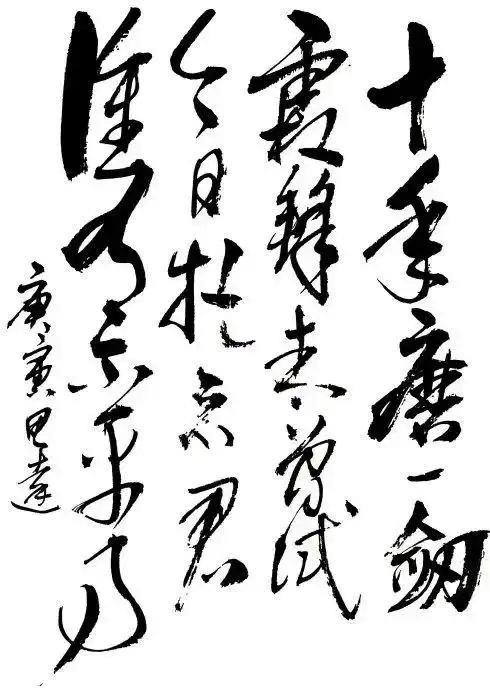 十年磨一劍
霜未曾試
今日把示君
誰有不平事
庚寅